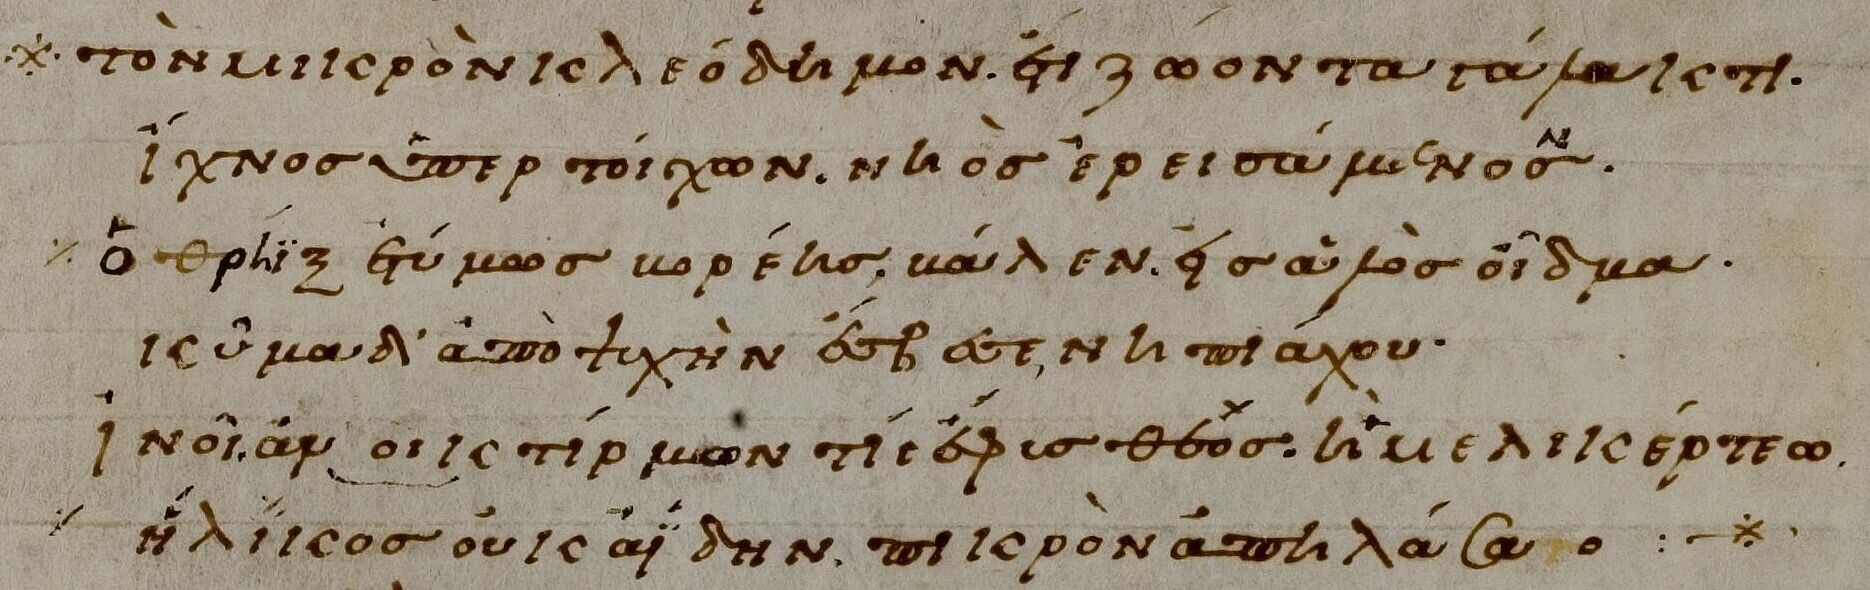 τὸν μικρὸν κλεόδημον. ἔτι ζώοντα γάλακτι.
ἴχνος ὑπερ τοίχων. νηὸσ ἐρεισάμενοσν.
ὁ θρηῒξ ἐτύμωσ βορέησ, βάλεν. ἐσ ἁλὸσ οἶδμα.
κῦμα δ' ἀπὸ ψυχὴν ἔσβεσε, νηπιάχου.
ἰνοῖ. ἀν οικτίρμων τίσ ἔφυσ θεόσ. ἡ μελικέρτεω.
ἥλικοσ οὐκ ἀΐδην. πικρὸν ἀπηλάσαο :